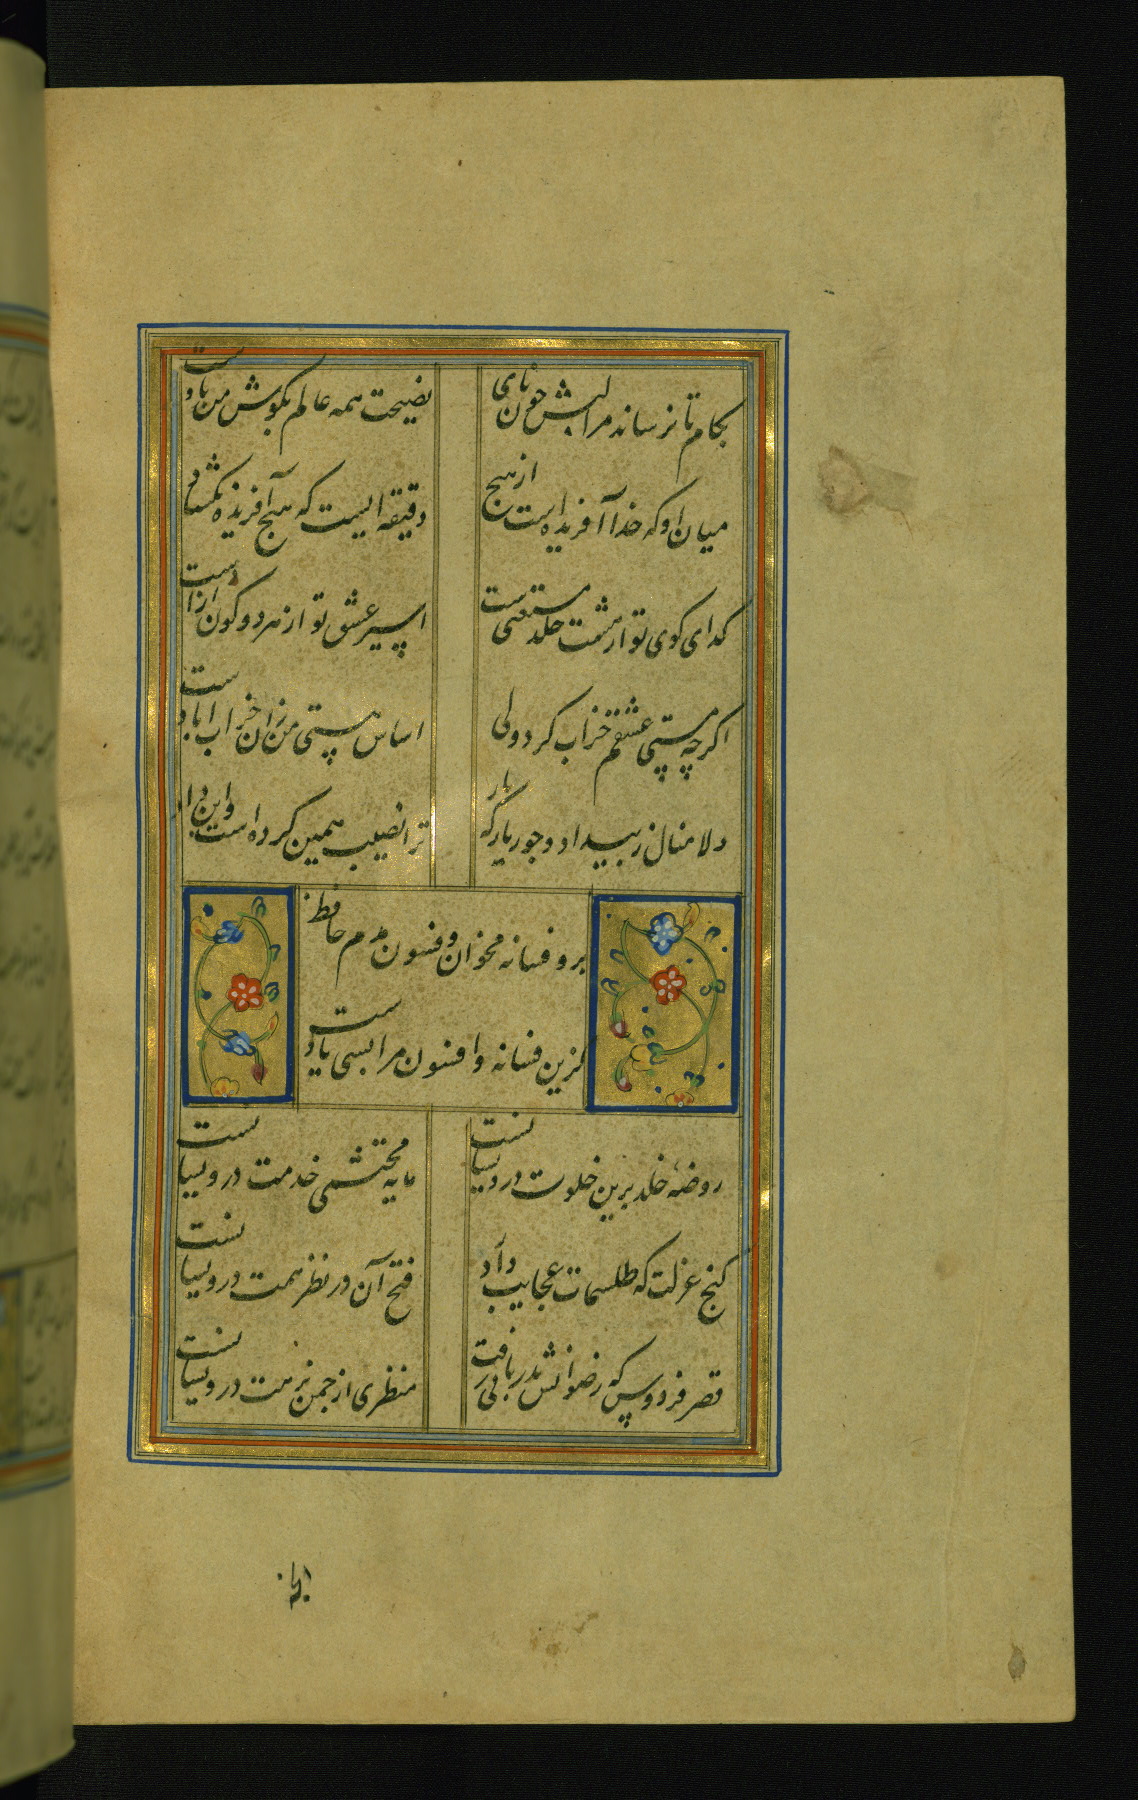 بکام تا نرساند مرا لبش چون نای
نصیحت همه عالم بکوش من بادست
میان او که خدا آفریده است از هیچ
دقیقه ایست که هیچ آفریده نکشاد
کدای کوی تو از هشت خلد مستغنی ست
اسیر عشق تو از هر دو کون ازادست
اکرچه مستی عشقم خراب کرد ولی
اساس هستی من زان خراب ابادست
دلا منال ز بیداد و جور یار که یار
ترا نصیب همین کرده است و این داد
برو فسانه مخوان و فسون مدم حافظ
کزین فسانه و افسون مرا بسی یادست
روضهٔ خلد برین خلوت درویشانست
مایه محتشمی خدمت درویشانست
کنج عزلت که طلسمات عجایب دارد
فتح آن در نظر همت درویشانست
قصر فردوس که رضوانش بدربانی رفت
منظری از چمن نزهت درویشانست